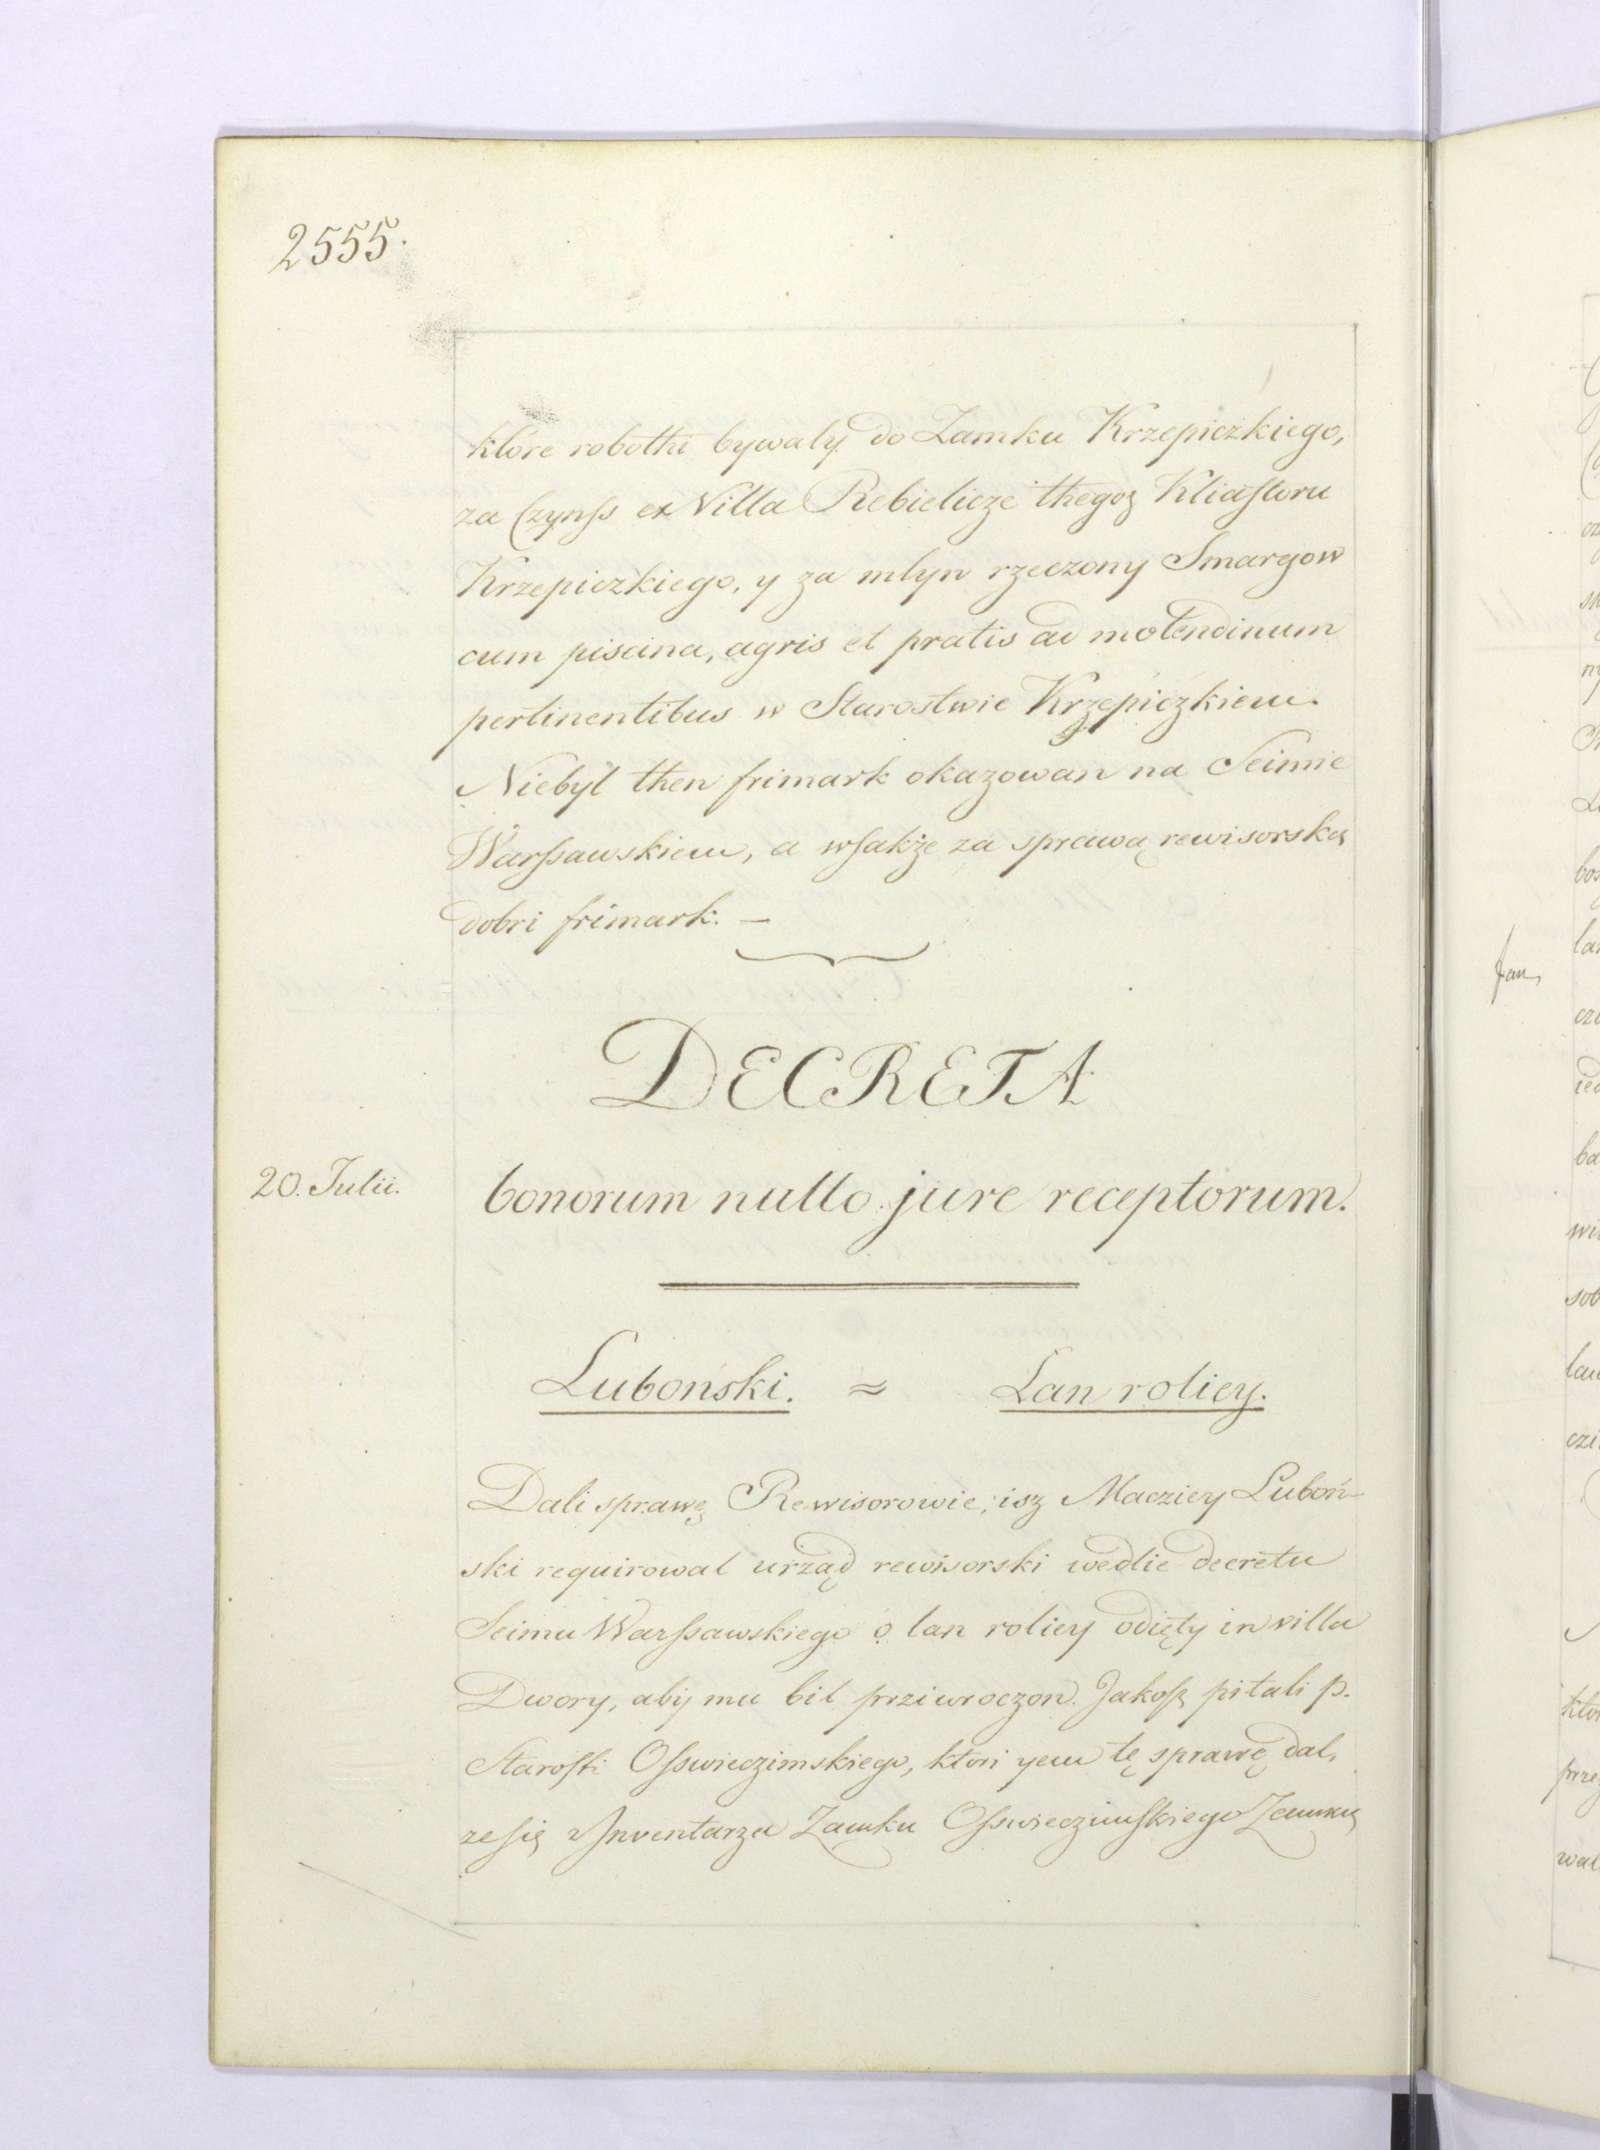 2555.
ktore robothi bywały do Zamku Krzepiczkiego,
za Czynſs ex Villa Rebielicze thegoz Kliasſtoru
Krzepiczkiego, y za młyn rzeczony Smargow
cum piscina, agris et pratis ad molendinum
pertinentibus w Starostwie Krzepiczkiem.
Niebył then frimark okazowan na Seimie
Warſsawskiem, a wſakże za sprawą rewisorską
dobri frimark. —
DECRETA
20. Julii.
bonorum nullo jure receptorum.
Luboński. = Łan roliey.
Dali sprawę Rewisorowie, isz Macziey Luboń-
ski requirowal urząd rewisorski wedlie decretu
Seimu Warſsawskiego o łan roliey odięty in villa
Dwory, abÿ mu bił prziwroczon. Jakoſz pitali p.
Staroſti Oſswieczimskiego, ktori yem tę sprawę dal,
ze ſię z Inventarza Zamku Oſswieczimſkiego